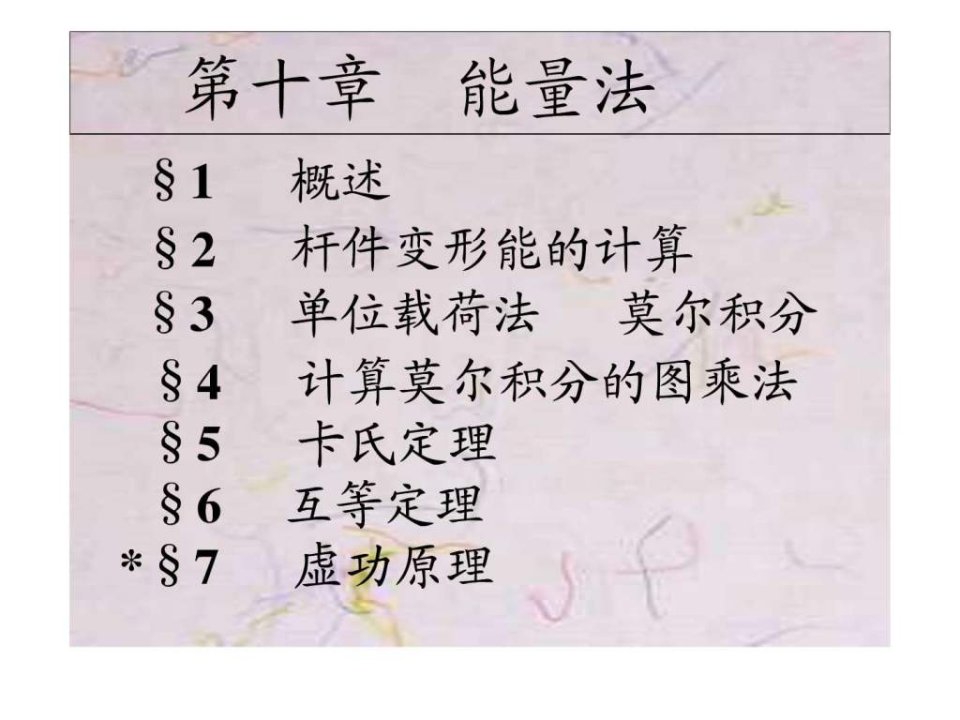 第十章 能量法
§1 概述
§2 杆件变形能的计算
§3 单位载荷法 莫尔积分
§4 计算莫尔积分的图乘法
§5 卡氏定理
§6 互等定理
*§7 虚功原理